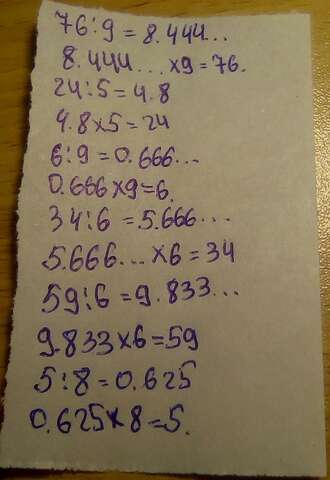 76:9=8.444...
8.444...x9=76.
24:5=4.8
4.8x5=24
6:9=0.666...
0.666x9=6.
34:6=5.666...
5.666...x6=34
59:6=9.833...
9.833x6=59
5:8=0.625
0.625x8=5.